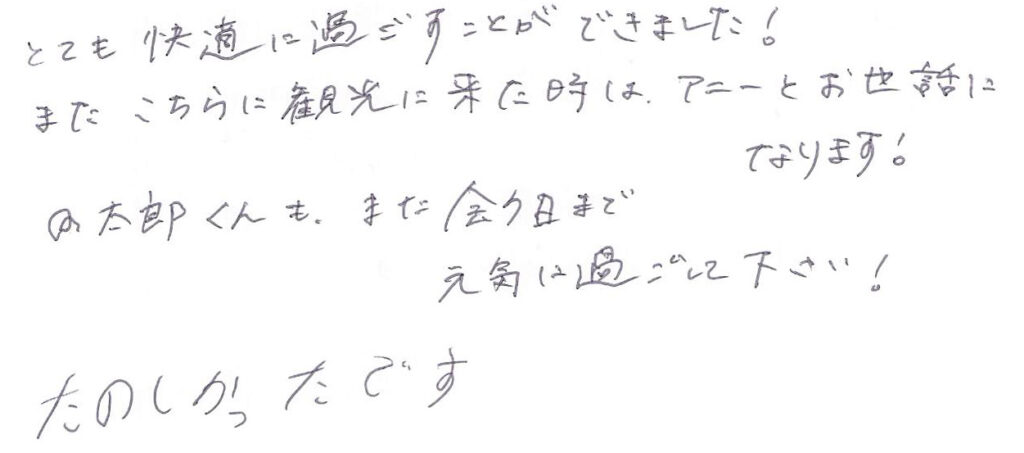 とても快適に過ごすことができました!
またこちらに観光に来た時は、アニーとお世話に
なります!
の太郎くんも、また会う日まで
元気に過ごして下さい!
たのしかったです